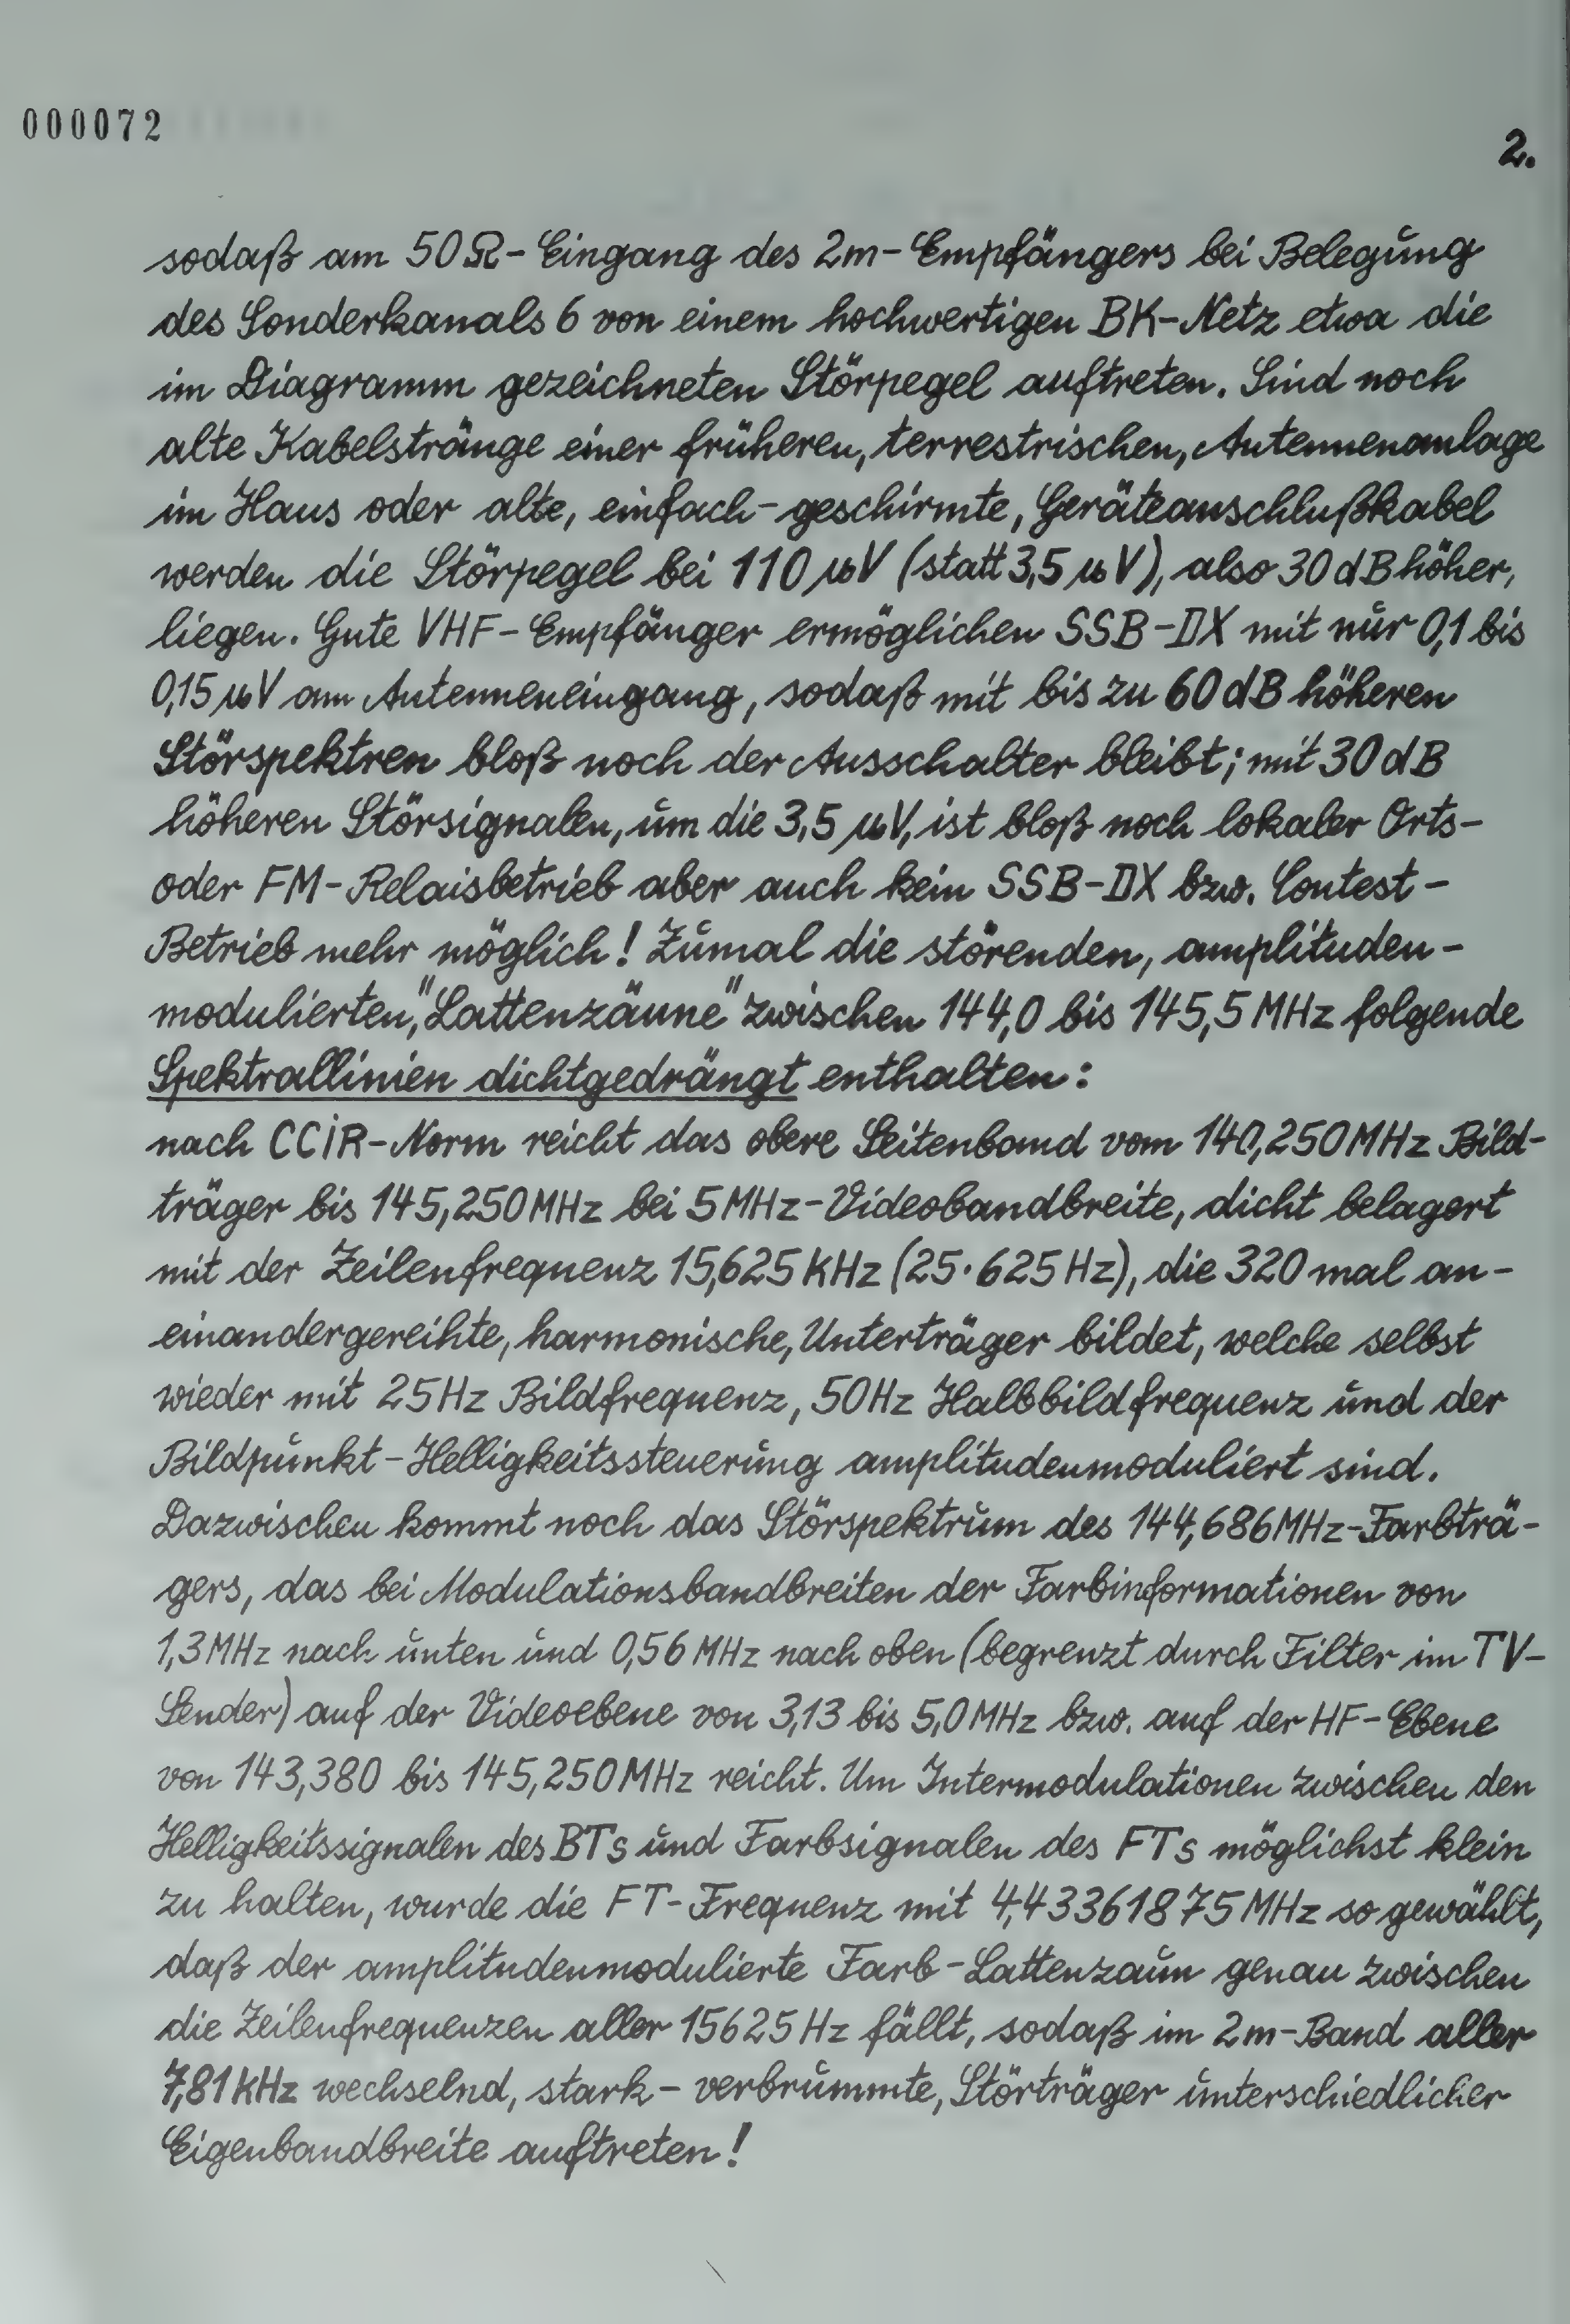 000072
2.
sodaß am 50Ω-Eingang des 2m-Empfängers bei Belegung
des Sonderkanals 6 von einem hochwertigen BK-Netz etwa die
im Diagramm gezeichneten Störpegel auftreten. Sind noch
alte Kabelstränge einer früheren, terrestrischen, Antennenanlage
im Haus oder alte, einfach-geschirmte, Geräteanschlußkabel
werden die Störpegel bei 110 µV (statt 3,5 µV), also 30 dB höher,
liegen. Gute VHF-Empfänger ermöglichen SSB-DX mit nur 0,1 bis
0,15 µV am Antenneneingang, sodaß mit bis zu 60 dB höheren
Störspektren bloß noch der Ausschalter bleibt; mit 30 dB
höheren Störsignalen, um die 3,5 µV, ist bloß noch lokaler Orts-
oder FM-Relaisbetrieb aber auch kein SSB-DX bzw. Contest-
Betrieb mehr möglich! Zumal die störenden, amplituden-
modulierten, "Lattenzäune" zwischen 144,0 bis 145,5 MHz folgende
Spektrallinien dichtgedrängt enthalten:
nach CCIR-Norm reicht das obere Seitenband vom 140,250 MHz Bild-
träger bis 145,250 MHz bei 5 MHz-Videobandbreite, dicht belagert
mit der Zeilenfrequenz 15,625 KHz (25·625 Hz), die 320 mal an-
einandergereihte, harmonische, Unterträger bildet, welche selbst
wieder mit 25 Hz Bildfrequenz, 50 Hz Halbbildfrequenz und der
Bildpunkt-Helligkeitssteuerung amplitudenmoduliert sind.
Dazwischen kommt noch das Störspektrum des 144,686 MHz-Farbträ-
gers, das bei Modulationsbandbreiten der Farbinformationen von
1,3 MHz nach unten und 0,56 MHz nach oben (begrenzt durch Filter im TV-
Sender) auf der Videoebene von 3,13 bis 5,0 MHz bzw. auf der HF-Ebene
von 143,380 bis 145,250 MHz reicht. Um Intermodulationen zwischen den
Helligkeitssignalen des BTs und Farbsignalen des FTs möglichst klein
zu halten, wurde die FT-Frequenz mit 4,433361875 MHz so gewählt,
daß der amplitudenmodulierte Farb-Lattenzaun genau zwischen
die Zeilenfrequenzen aller 15625 Hz fällt, sodaß im 2m-Band aller
7,81 KHz wechselnd, stark-verbrummte, Störträger unterschiedlicher
Eigenbandbreite auftreten!